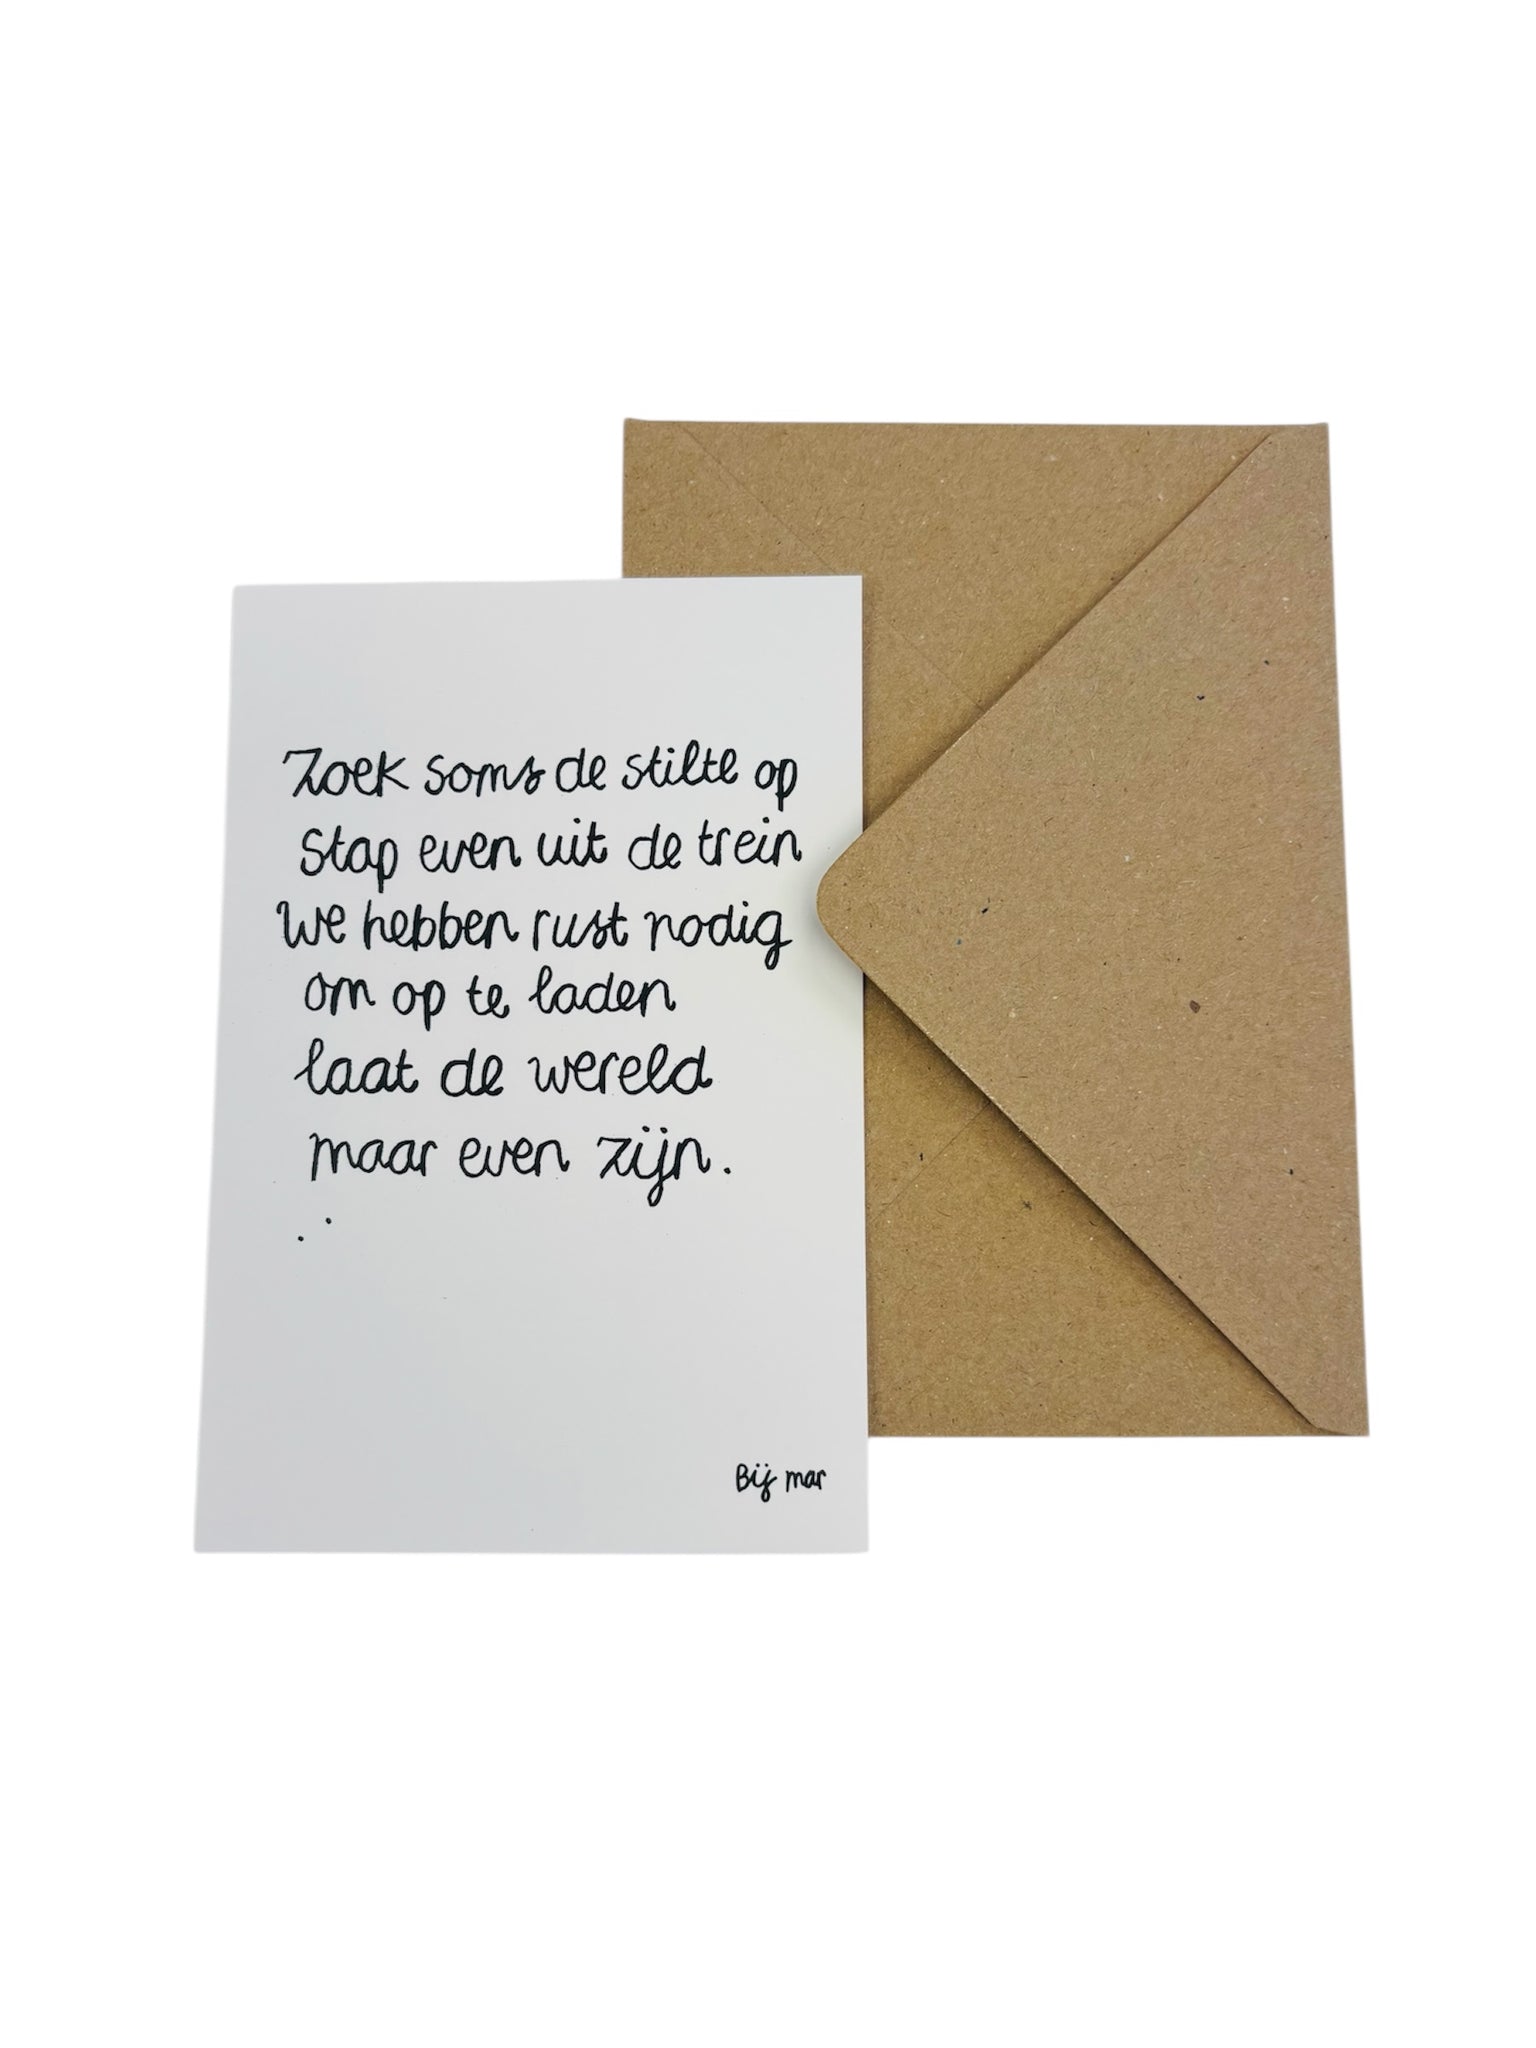 Zoek soms de stilte op
Stap even uit de trein
We hebben rust nodig
om op te laden
laat de wereld
maar even zijn.
. .
Bij mar